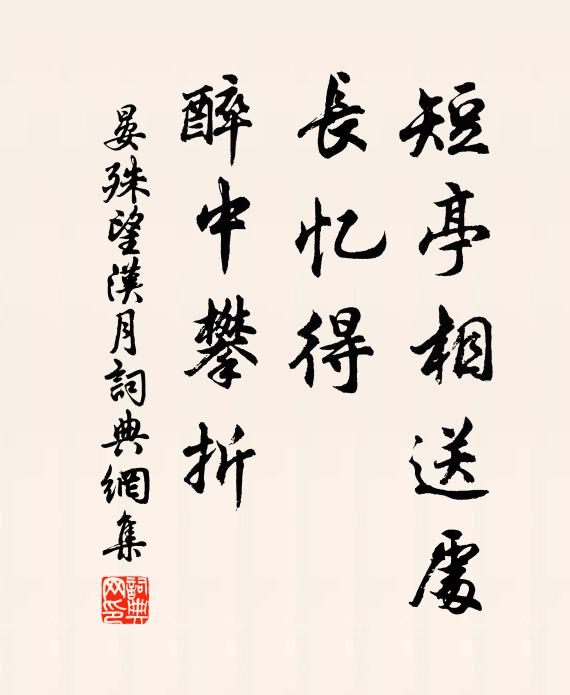 短亭相送處
長忆得
醉中攀折
晏殊望漢月詞典網集
詞典
网印